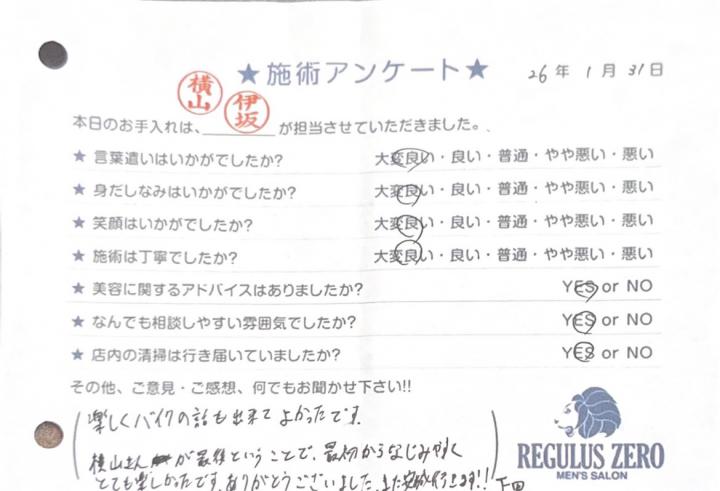 ★施術アンケート★ 26年 1月 31日
横山 伊坂
本日のお手入れは、 が担当させていただきました。
★ 言葉遣いはいかがでしたか? 大変良い・良い・普通・やや悪い・悪い
★ 身だしなみはいかがでしたか? 大変良い・良い・普通・やや悪い・悪い
★ 笑顔はいかがでしたか? 大変良い・良い・普通・やや悪い・悪い
★ 施術は丁寧でしたか? 大変良い・良い・普通・やや悪い・悪い
★ 美容に関するアドバイスはありましたか? YES or NO
★ なんでも相談しやすい雰囲気でしたか? YES or NO
★ 店内の清掃は行き届いていましたか? YES or NO
その他、ご意見・ご感想、何でもお聞かせ下さい!!
楽しくバイクの話も出来てよかったです。
横山さんが最後ということで、最初からなじみやすく
とても楽しかったです。ありがとうございました。また 行きます!!
REGULUS ZERO
MEN'S SALON